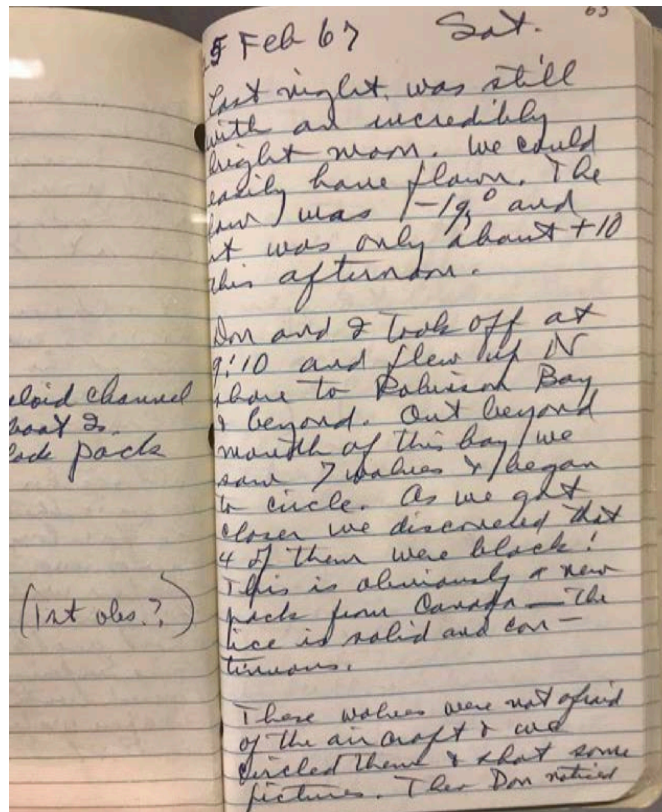 63
25 Feb 67 Sat.
Last night was still
with an incredibly
bright moon. We could
easily have flown. The
low was -19° and
it was only about +10
this afternoon.
Don and I took off at
9:10 and flew up N
shore to Robinson Bay
& beyond. Out beyond
mouth of this bay we
saw 7 wolves & began
to circle. As we got
closer we discovered that
4 of them were black!
This is obviously a new
pack from Canada — the
ice is solid and con-
tinuous.
These wolves were not afraid
of the aircraft & we
circled them & shot some
pictures. Then Don noticed
channel
pack
(1st obs.?)